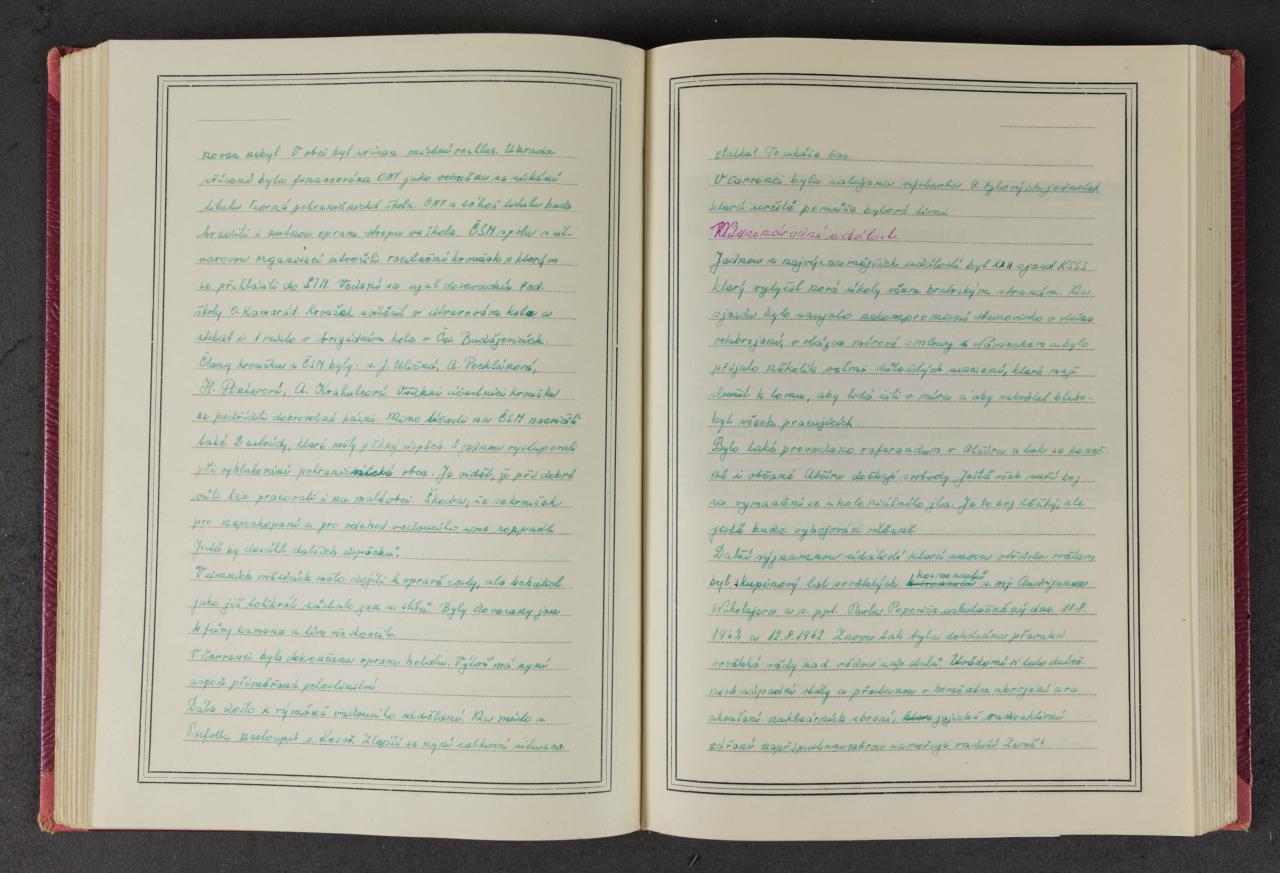 naven nebyl. V obci byl zřízen místní rozhlas. Úhrada
zřízení byla financována ONV jako odměna za získání
titulu Vzorná pohraničnická škola. ONV z téhož titulu bude
hraditi i nutnou opravu stropu ve škole. ČSM spolu s út-
varovou organizací utvořili recitační kroužek s kterým
se přihlásili do STM. Vedení se ujal dosavadní řed.
školy O. Kamarát. Kroužek zvítězil v útvarovém kole a
získal i 1 místo v brigádním kole v Čes Budějovicích.
Členy kroužku z ČSM byly: s. J. Uličná, A. Pechlátová,
H. A. Krahulcová. Všichni účastníci kroužku
se podřídili dobrovolné kázni. Mimo účasti na ČSM nacvičili
také 2 estrády, které měly pěkný úspěch. S jednou vystupovali
při vyhlašování pohraničnické obce. Je vidět, že při dobré
vůli lze pracovati i na malé obci. Škoda, že se kroužek
pro nepochopení a pro odchod vedoucího rozpadl.
Jistě by dosáhl dalších úspěchů.
V zimních měsících mělo dojíti k opravě cesty, ale bohužel
jako již tolikrát zůstalo jen u slibů. Byly dovezeny jen
4 fůry kamene a tím vše skončilo.
V červenci byla dokončena oprava hotelu. Výtoň má nyní
aspoň přiměřené pohostinství
Dále došlo k výměně vedoucího oddělení. Na místo s.
nastoupil s. Kosař. Zlepší se nyní celková situace
statku? To ukáže čas.
V červenci byla zahájena výstavba 9 bytových jednotek,
která určitě pomůže bytové tísni.
Mezinárodní události.
Jednou z nejvýznamějších událostí byl XXII sjezd KSSS
který vytyčil nové úkoly všem bratrským stranám. Na
sjezdu bylo zaujato nekompromisní stanovisko v otázce
odzbrojení, v otázce mírové smlouvy s Německem a bylo
přijato několik velmi důležitých usnesení, které mají
sloužit k tomu, aby lidé žili v míru a aby nakvétal blaho-
byt všech pracujících.
Bylo také provedeno referendum v Alžíru a tak se koneč-
ně i občané Alžíru dočkají svobody. Ještě však vaří boj
za vymanění se z koloniálního jha. Je to boj těžký, ale
jistě bude vybojován vítězně.
Další významnou událostí která znovu otřásla světem
byl skupinový let sovětských kosmonautů s. mjr Andrijana
Nikolajeva a s. ppl. Pavla Popoviče uskutečněný dne 11.8.
1962 a 12.8.1962 Znovu tak byla dokázána převaha
sovětské vědy nad vědou západní. Uvědomí si tuto skuteč-
nost západní státy a přestanou v horečném zbrojení a ve
zkoušení nukleárních zbraní, jejichž radioaktivní
záření nepřípustnou měrou zamořuje ovzduší Země?